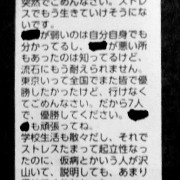 突然でごめんなさい。ストレ
スでもう生きていけそうにな
いです。
が弱いのは自分自身でも
分かってるし、が悪い所
もあったのは知ってるけど、
流石にもう耐えられません。
東京いって全国でまた皆で優
勝したかったけど、行けなく
てごめんなさい。だから7人
で、優勝してください。
も頑張ってね。
学校生活も散々だし、それで
ストレスたまって起立性なっ
たのに、仮病とかいう人が沢
山いて、説明しても、あまり